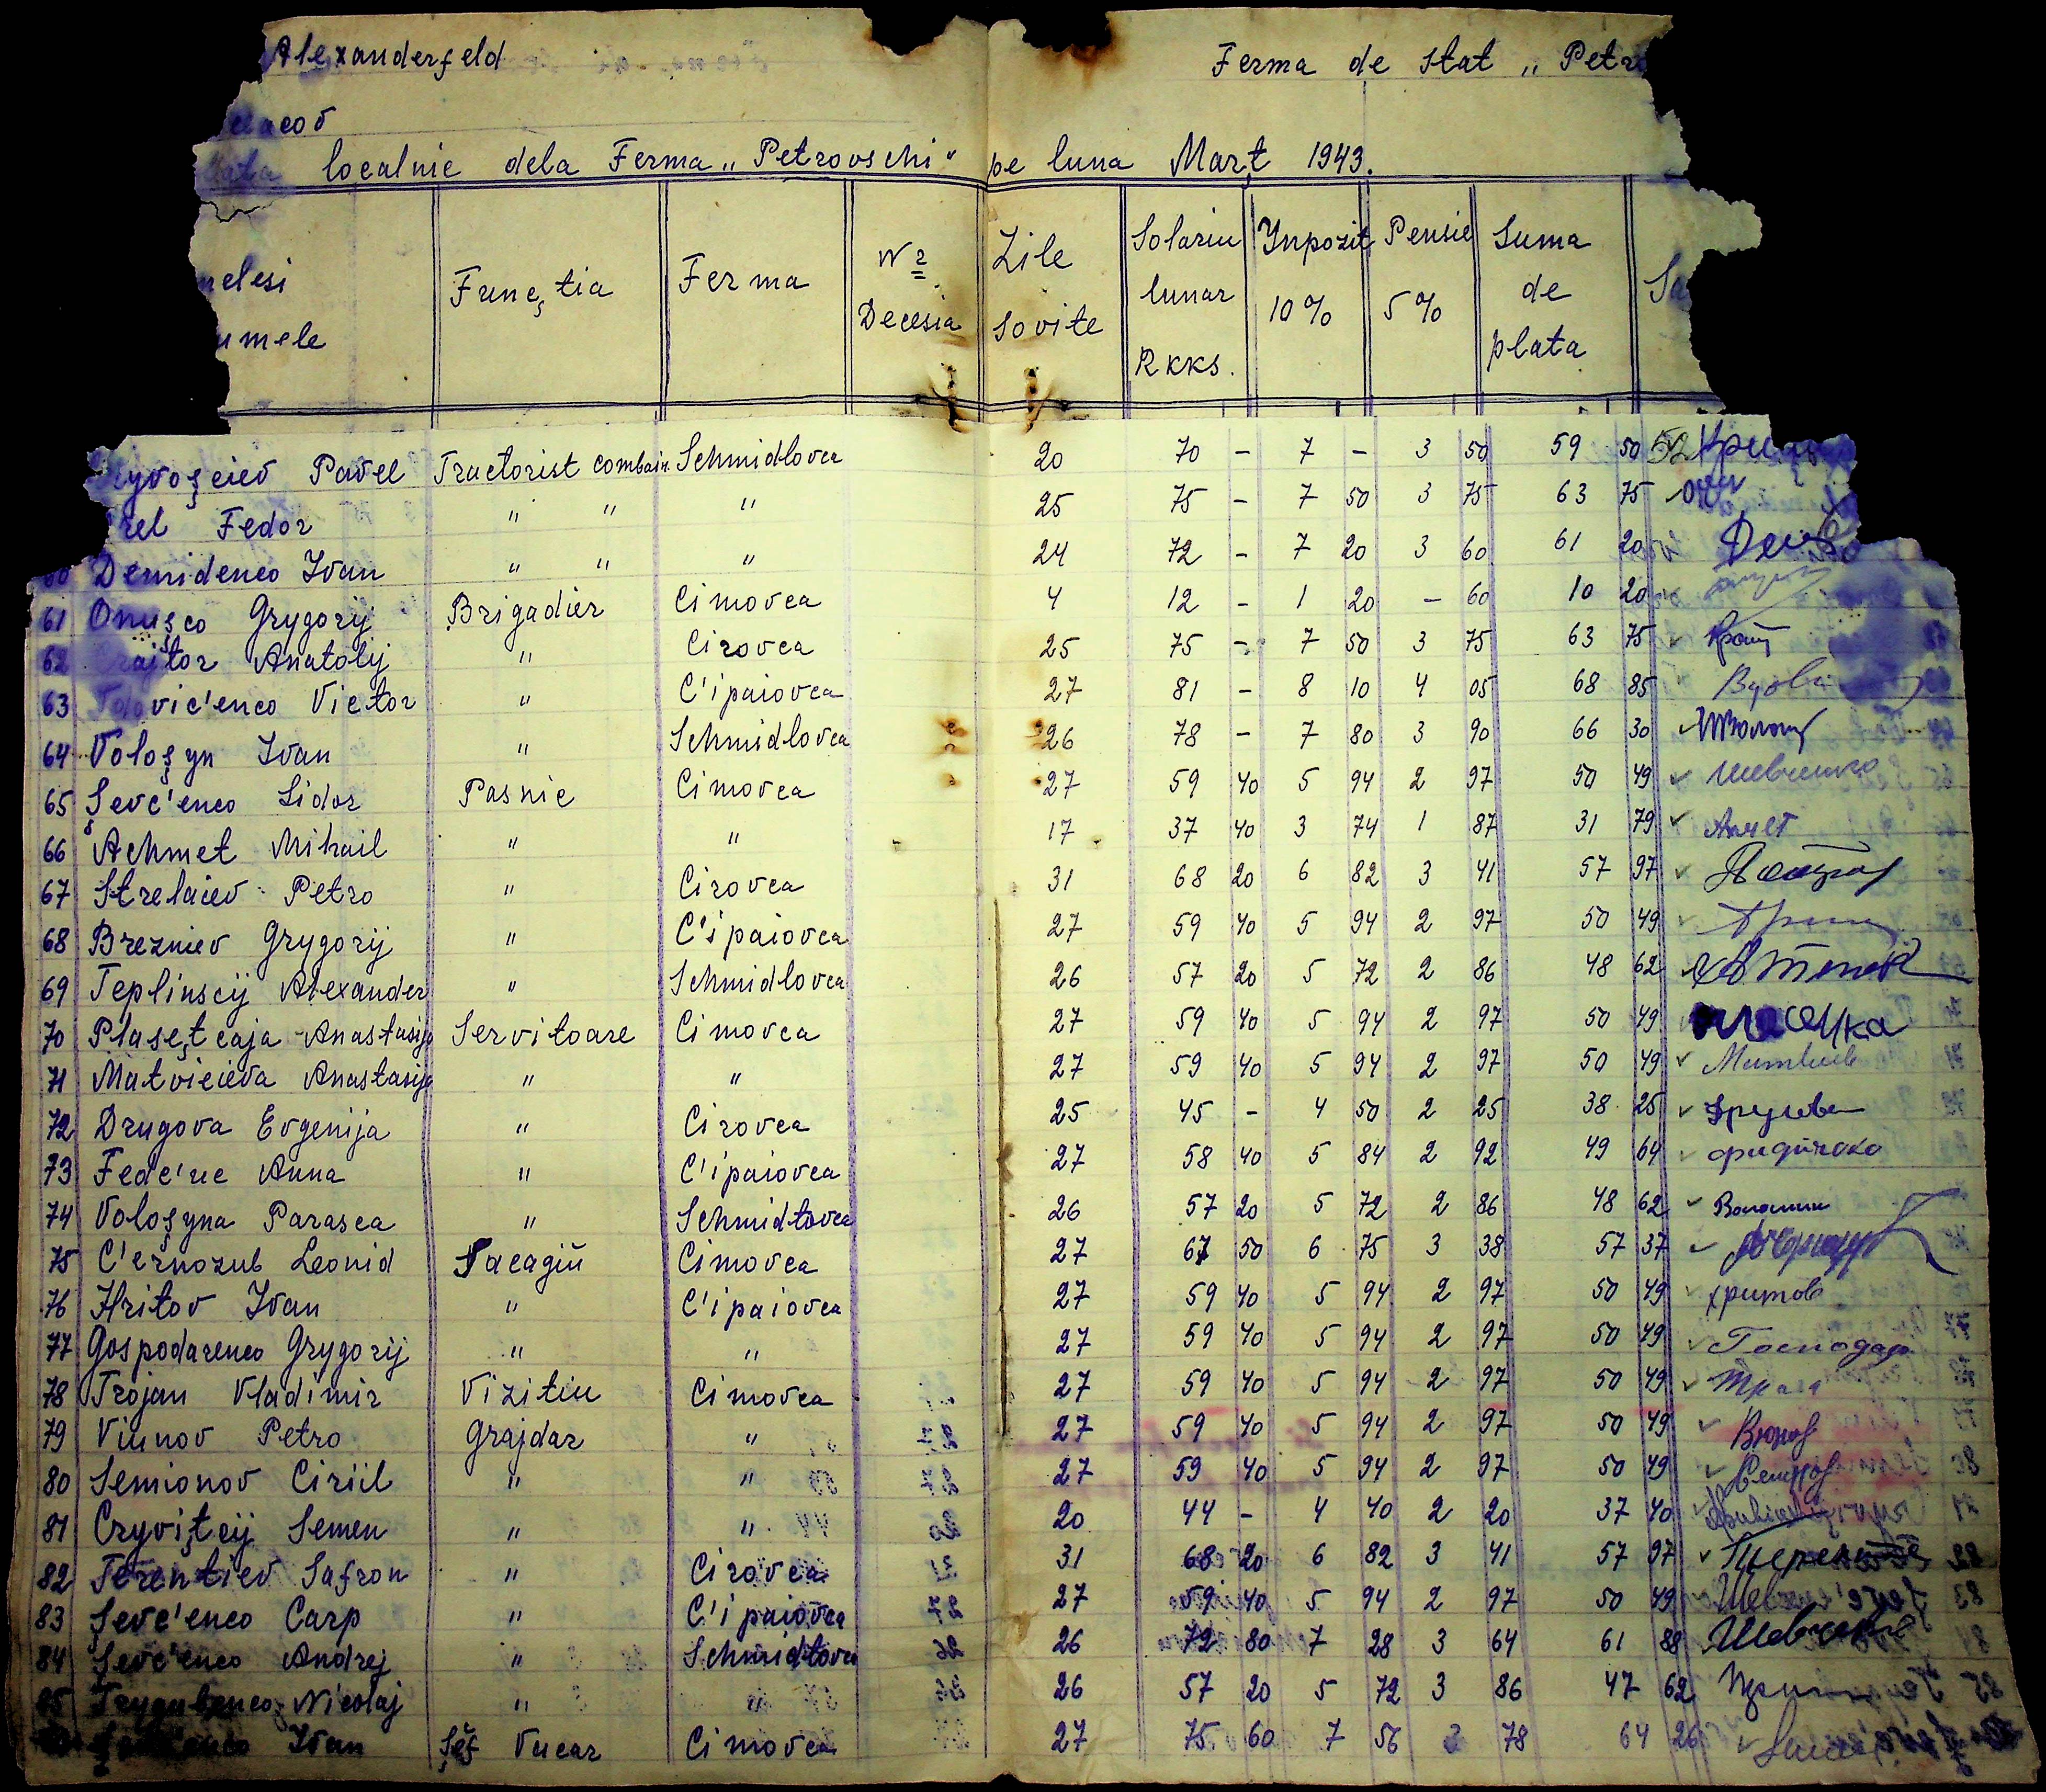 Alexanderfeld Ferma de stat „Petro
localnie dela Ferma „Petrovschi" pe luna Marţ 1943.
Funcţia Ferma Nr Decesia Zile sovite Solariu lunar Rkks. Ynpozit 10% Pensie 5% Suma de plata Sa
umele
Pavel Tractorist combain. Schmidlovca 20 70 - 7 - 3 50 59 50
rel Fedor " " " 25 75 - 7 50 3 75 63 75
60 Demidenco Ivan " " " 24 72 - 7 20 3 60 61 20
61 Onuşco Grygorij Brigadier Cimovca 4 12 - 1 20 - 60 10 20
62 Anatolij " Cirovca 25 75 - 7 50 3 75 63 75
63 Victor " C'ipaiovca 27 81 - 8 10 4 05 68 85
64 Voloşyn Ivan " Schmidlovca 26 78 - 7 80 3 90 66 30
65 Şevc'enco Sidor Pasnic Cimovca 27 59 40 5 94 2 97 50 49 Шевченко
66 Achmet Mihail " " 17 37 40 3 74 1 87 31 79 Ахмет
67 Strelaiev Petro " Cirovca 31 68 20 6 82 3 41 57 97
68 Brezniev Grygorij " C'ipaiovca 27 59 40 5 94 2 97 50 49
69 Teplinscij Alexander " Schmidlovca 26 57 20 5 72 2 86 48 62
70 Plaseţcaja Anastasija Servitoare Cimovca 27 59 40 5 94 2 97 50 49
71 Matvieieva Anastasija " " 27 59 40 5 94 2 97 50 49
72 Drugova Evgenija " Cirovca 25 45 - 4 50 2 25 38 25 Другова
73 Fedc'uc Anna " C'ipaiovca 27 58 40 5 84 2 92 49 64
74 Voloşyna Parasca " Schmidtovca 26 57 20 5 72 2 86 48 62 Волошин
75 C'ernozub Leonid Sacagiu Cimovca 27 67 50 6 75 3 38 57 37
76 Hritov Ivan " C'ipaiovca 27 59 40 5 94 2 97 50 49 Хритов
77 Gospodarenco Grygorij " " 27 59 40 5 94 2 97 50 49 Господар
78 Trojan Vladimir Vizitiu Cimovca 27 59 40 5 94 2 97 50 49
79 Viunov Petro Grajdar " 27 59 40 5 94 2 97 50 49 Вюнов
80 Semionov Ciriil " " 27 59 40 5 94 2 97 50 49 Семнов
81 Cryviţcij Semen " " 20 44 - 4 40 2 20 37 40
82 Terentiev Safron " Cirovca 31 68 20 6 82 3 41 57 97
83 Şevc'enco Carp " C'ipaiovca 27 59 40 5 94 2 97 50 49
84 Şevc'enco Andrej " Schmidtovca 26 72 80 7 28 3 64 61 88
85 Trygubenco Nicolaj " " 26 57 20 5 72 3 86 47 62
Ivan Şef Vucar Cimovca 27 75 60 7 56 3 78 64 26